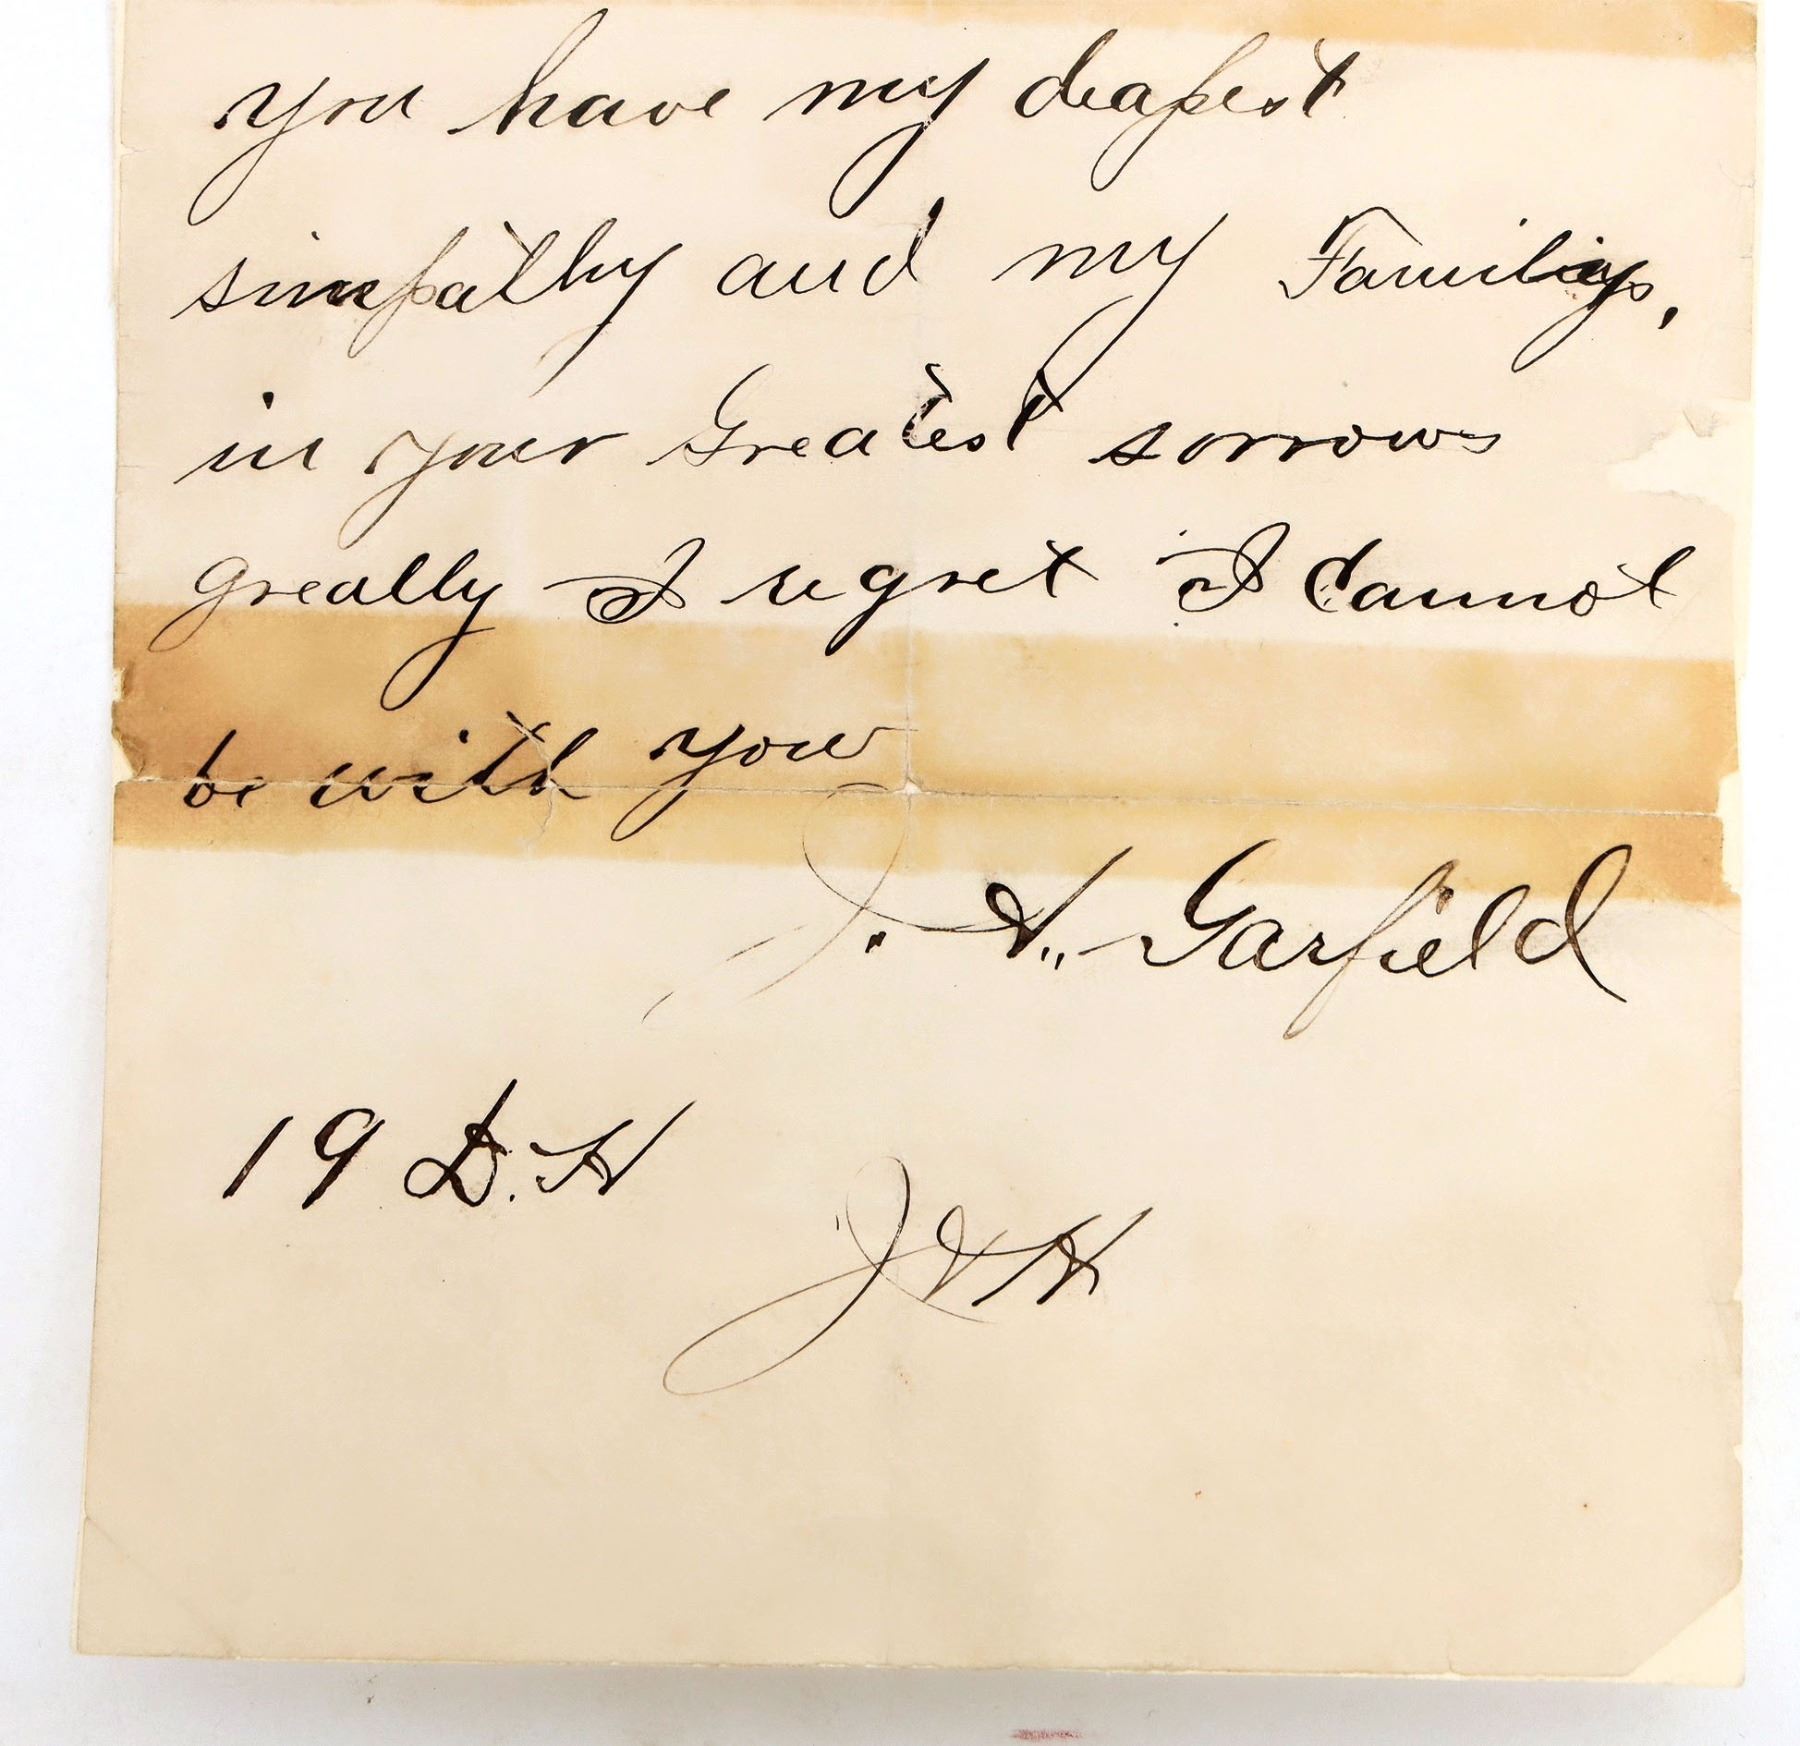 you have my deapest
simpathy and my Familys,
in your Greatest sorrows
greatly I regret I cannot
be with you
J. A. Garfield
19 D. H
J A H